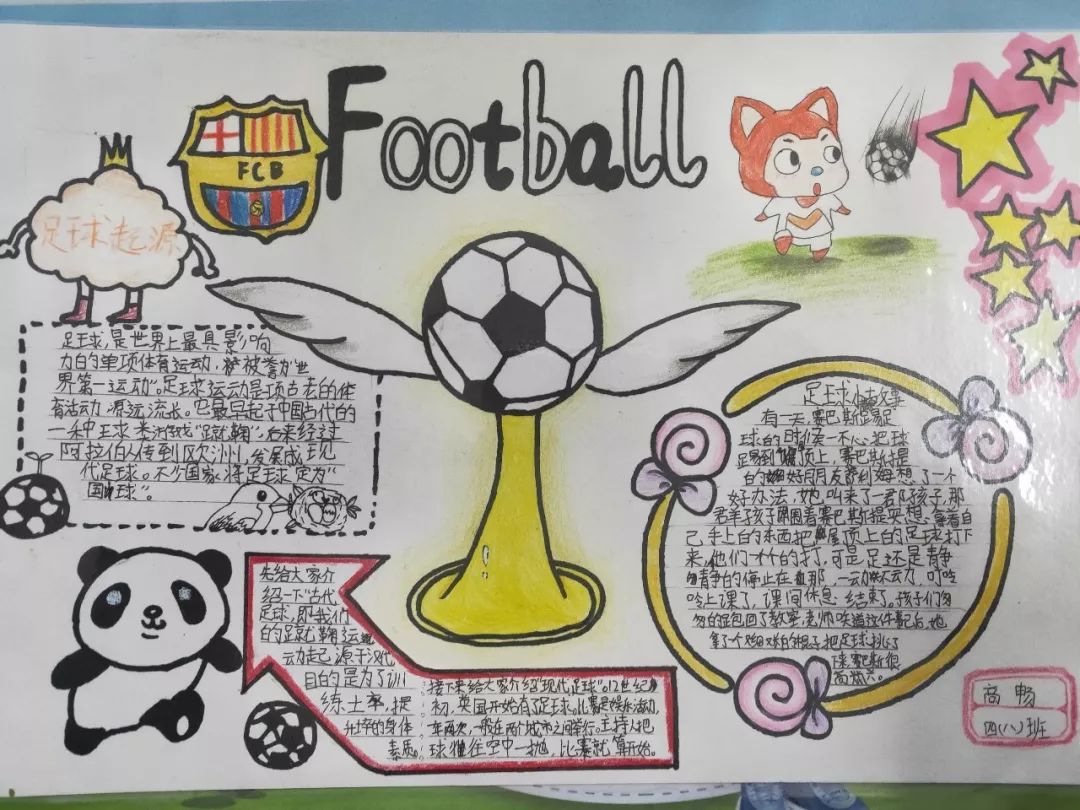 Football
FCB
足球起源
足球,是世界上最具影响
力的单项体育运动,被誉为"世
界第一运动"。足球运动是项古老的体
育活动 源远流长。它最早起于中国古代的
一种王求类游戏"蹴鞠",后来经过
阿拉伯人传到欧洲,发展成现
代足球。不少国家将足球定为"
国球"。
先给大家介
绍一下古代
足球,即我们
的足蹴鞠运
动起源于汉代
目的是为了训
练士卒,提
升士卒的身体
素质。
接下来给大家介绍"现代足球"。12世纪
初,英国开始有了足球,比赛是娱乐活动,
年两次,一般在两个城市之间举行。主持人把
球往空中一抛,比赛就算开始。
足球小故事
有一天,赛巴斯踢足
球的时候一不心把球
踢到屋顶上,赛巴斯提
的好朋友莉姆想了一个
好办法,她叫来了一群孩子,那
群孩子围着赛巴斯提安想拿着自
己手上的东西把屋顶上的足球打下
来,他们不停的打,可是足还是静
静的停止在那,一动不动,叮咚
咚上课了,课间休息结束了。孩子们匆
匆的跑回了教室,老师知道这件事后,他
拿了个的梯子把足球
球赛斯很
高兴。
高畅
四(八)班